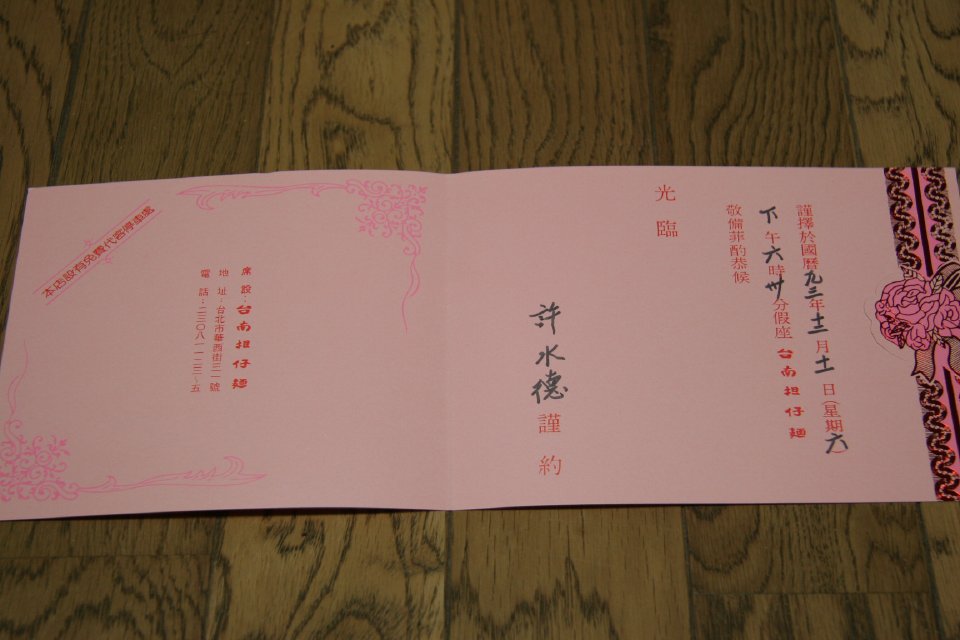 謹擇於國曆九三年十二月十一日(星期六)
下午六時卅分假座台南担仔麵
敬備菲酌恭候
光臨
許水德謹約
席設:台南担仔麵
地址:台北市華西街三一號
電話:二三〇八一一二三~五
本店設有免費代客停車處